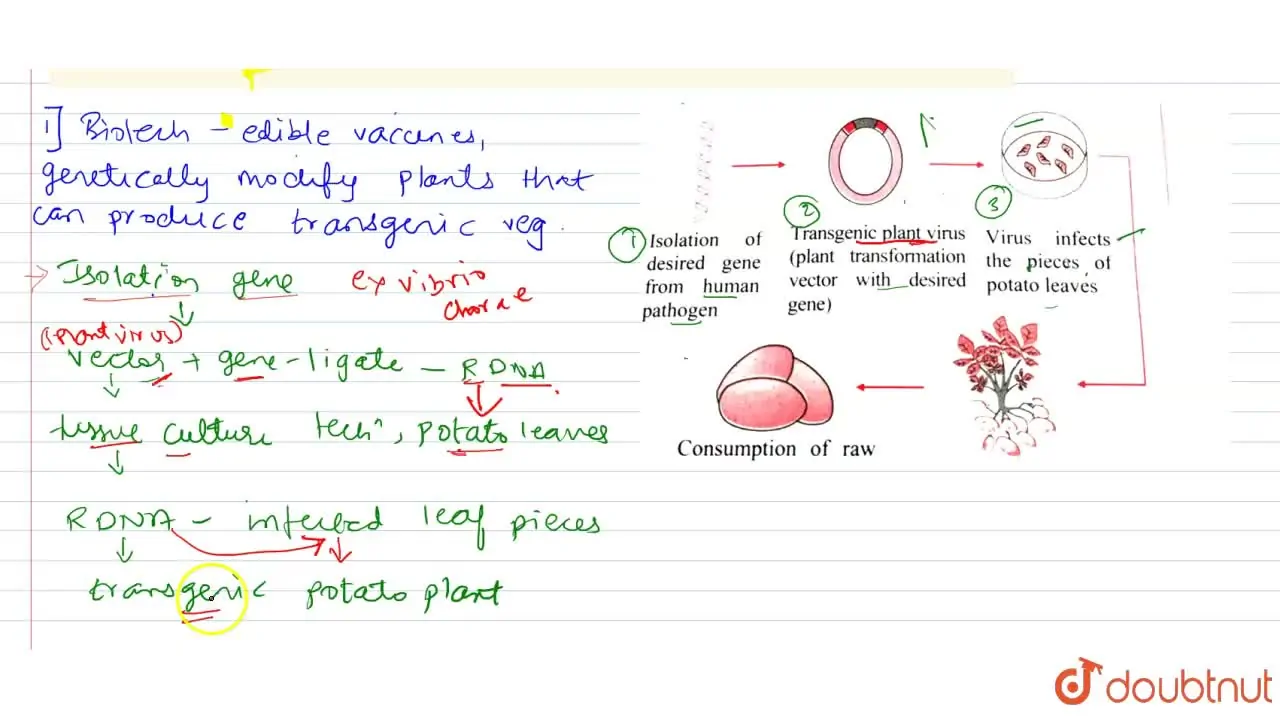 1] Biotech - edible vaccines,
genetically modify plants that
can produce transgenic veg.
Isolation gene ex vibrio
cholrae
(Plant virus)
vector + gene - ligate - RDNA
tissue culture techⁿ, potato leaves
RDNA - infected leaf pieces
transgenic potato plant
1 Isolation of
desired gene
from human
pathogen
2
Transgenic plant virus
(plant transformation
vector with desired
gene)
3
Virus infects
the pieces of
potato leaves
Consumption of raw
doubtnut